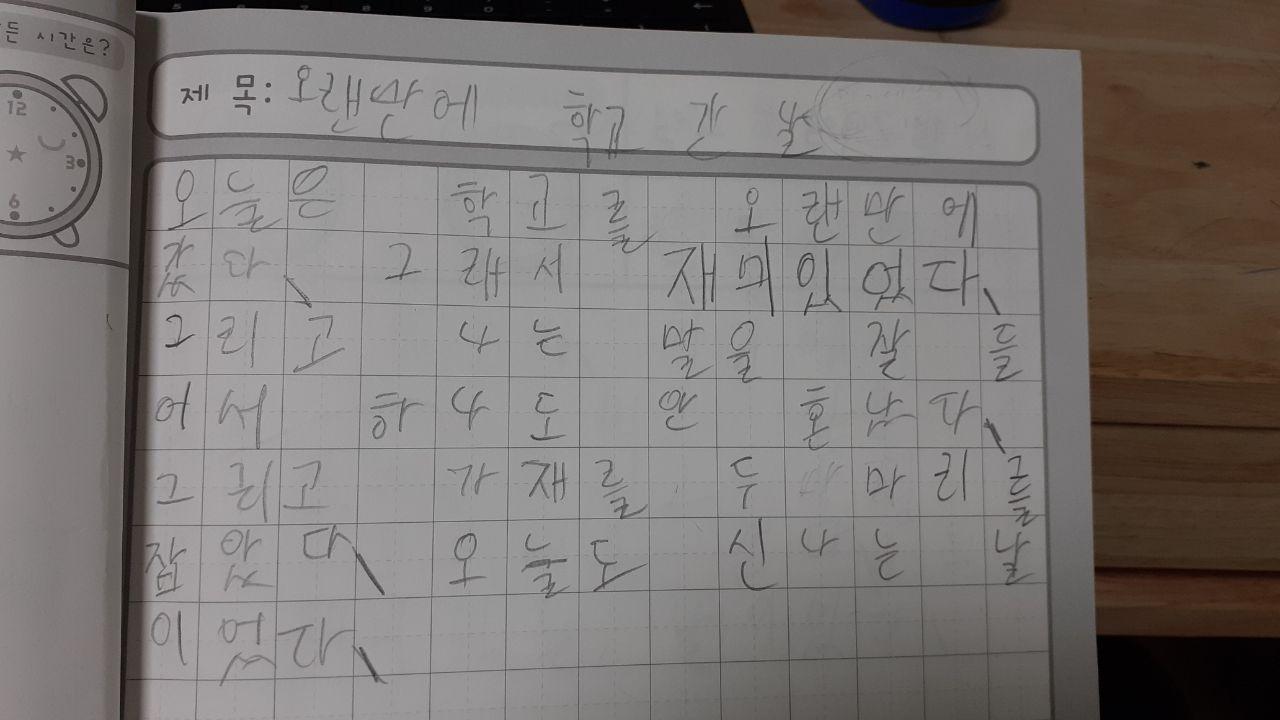 든 시간은?
12
3
6
제 목: 오랜만에 학교 간 날
오늘은 학고를 오랜만에
갔다. 그래서 재미있었다.
그리고 나는 말을 잘 들
어서 하나도 안 혼났다.
그리고 가재를 두 마리를
잡았다. 오늘도 신나는 날
이었다.